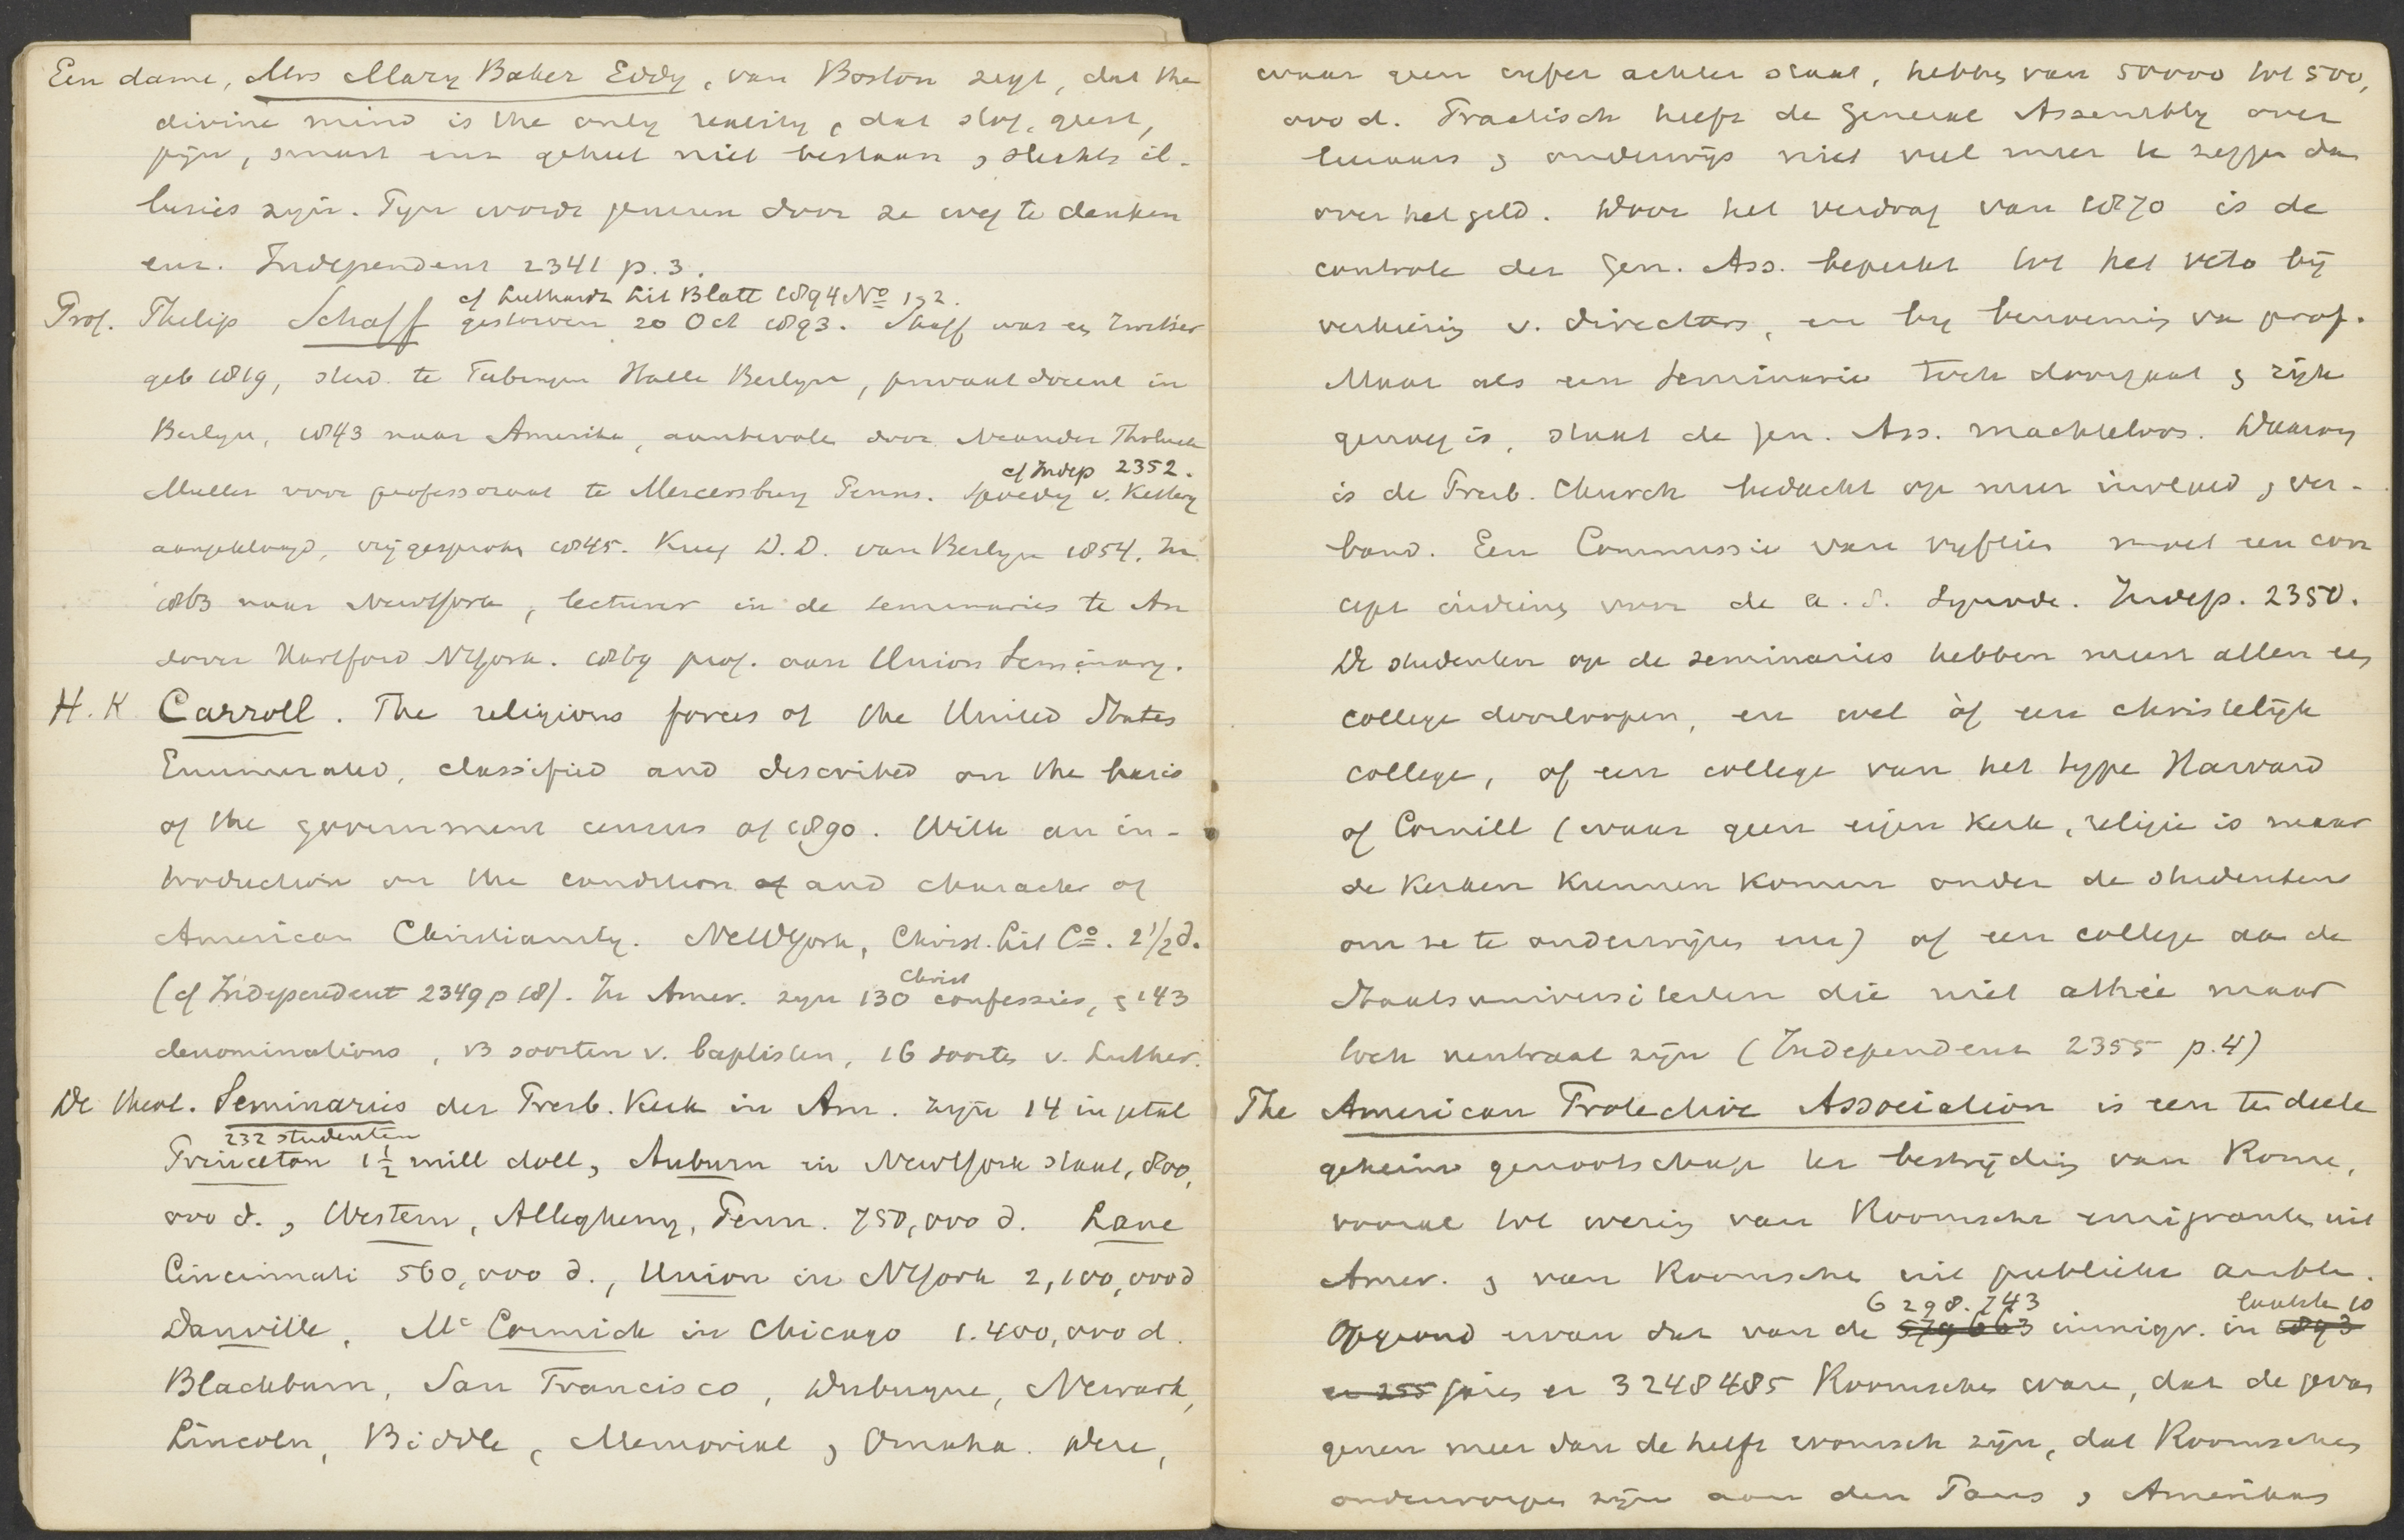 Een dame, Mrs Mary Baker Eddy, van Boston zegt, dat the
divine mind is the only reality, dat stof, geest,
pijn, smart enz geheel niet bestaan & slechts il-
lusies zijn. Pijn wordt genezen door ze weg te denken
enz. Independent 2341 p. 3.
cf Luthardt Lit Blatt 1894 No 1 & 2.
Prof. Philip Schaff gestorven 20 Oct 1893. Schaff was een Zwitser
geb 1819, stud. te Tubingen Halle Berlijn, privaatdocent in
Berlijn, 1843 naar Amerika, aanbevolen door Neander Tholuck
cf Indep 2352.
Muller voor professoraat te Mercersburg Penns. Spoedig v. Ketterij
aangeklaagd, vrijgesproken 1845. Kreeg D.D. van Berlijn 1854. In
1863 naar NewYork, lecturer in de seminaries te An
dover Hartford NYork. 1869 prof. aan Union Seminary.
H. K Carroll. The religious forces of the United States
Enumerated, classified and described on the basis
of the government census of 1890. With an in-
troduction on the condition of and character of
American Christianity. NewYork, Christ. Lit Co. 2 1/2 d.
Christ
(cf Independent 2349 p 18). In Amer. zijn 130 confessies, & 143
denominations, 13 soorten v. baptisten, 16 soorten v. Luther.
De theol. Seminaries der Presb. Kerk in Am. zijn 14 in getal
232 studenten
Princeton 1 1/2 mill doll, Auburn in NewYork staat, 800,
000 d., Western, Allegheny, Penn. 750,000 d. Lane
Cincinnati 500,000 d., Union in NYork 2,100,000 d
Danville, Mc Cormick in Chicago 1.400,000 d.
Blackburn, San Francisco, Dubuque, Newark,
Lincoln, Biddle, Memorial & Omaha. Deze,
waar geen cijfer achter staat, hebben van 50000 tot 500,
000 d. Practisch heeft de General Assembly over
leeraars & onderwijs niet veel meer te zeggen dan
over het geld. Door het verdrag van 1870 is de
controle der Gen. Ass. beperkt tot het veto bij
verkiezing v. directors, en bij benoeming van prof.
Maar als een Seminarie toch doorgaat & rijk
genoeg is, staat de Gen. Ass. machteloos. Daarom
is de Presb. Church bedacht op meer invloed & ver-
band. Een Commissie van vijftien moet een con
cept indienen voor de a. s. Synode. Indep. 2350.
De studenten op de seminaries hebben meest allen een
college doorloopen, en wel òf een christelijk
college, of een college van het type Harvard
of Cornill (waar geen eigen Kerk, religie is maar
de Kerken kunnen komen onder de studenten
om ze te onderwijzen enz) of een college aan de
Staatsuniversiteiten die niet atheïe maar
toch neutraal zijn (Independent 2355 p. 4)
The American Protective Association is een ten deele
geheim genootschap ter bestrijding van Rome,
vooral tot wering van Roomsche emigranten uit
Amer. & van Roomsche uit publieke ambten.
6 298.743 laatste 10
Opgrond ervan dat van de 579663 immigr. in 1893
er 255 jaren er 3248485 Roomschen ware, dat de gevan
genen meer dan de helft roomsch zijn, dat Roomschen
onderworpen zijn aan den Paus & Amerikas